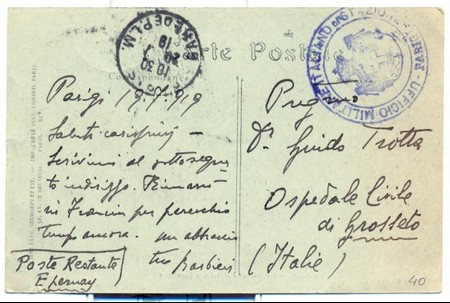 Carte Postale
Correspondance
PARIS
GARE DE P.L.M.
10 30
29 - 7
19
UFFICIO MILITARE ITALIANO DI STAZIONE - PARIS
Parigi 29/7/919
Saluti carissimi -
Scrivimi al sottosegna-
to indirizzo. Rimarrò
in Francia per parecchio
tempo ancora. Un abbraccio
tuo Barbieri
Poste Restante
Epernay
Preg.mo
Dr. Guido Trotta
Ospedale Civile
di Grosseto
(Italie)
40